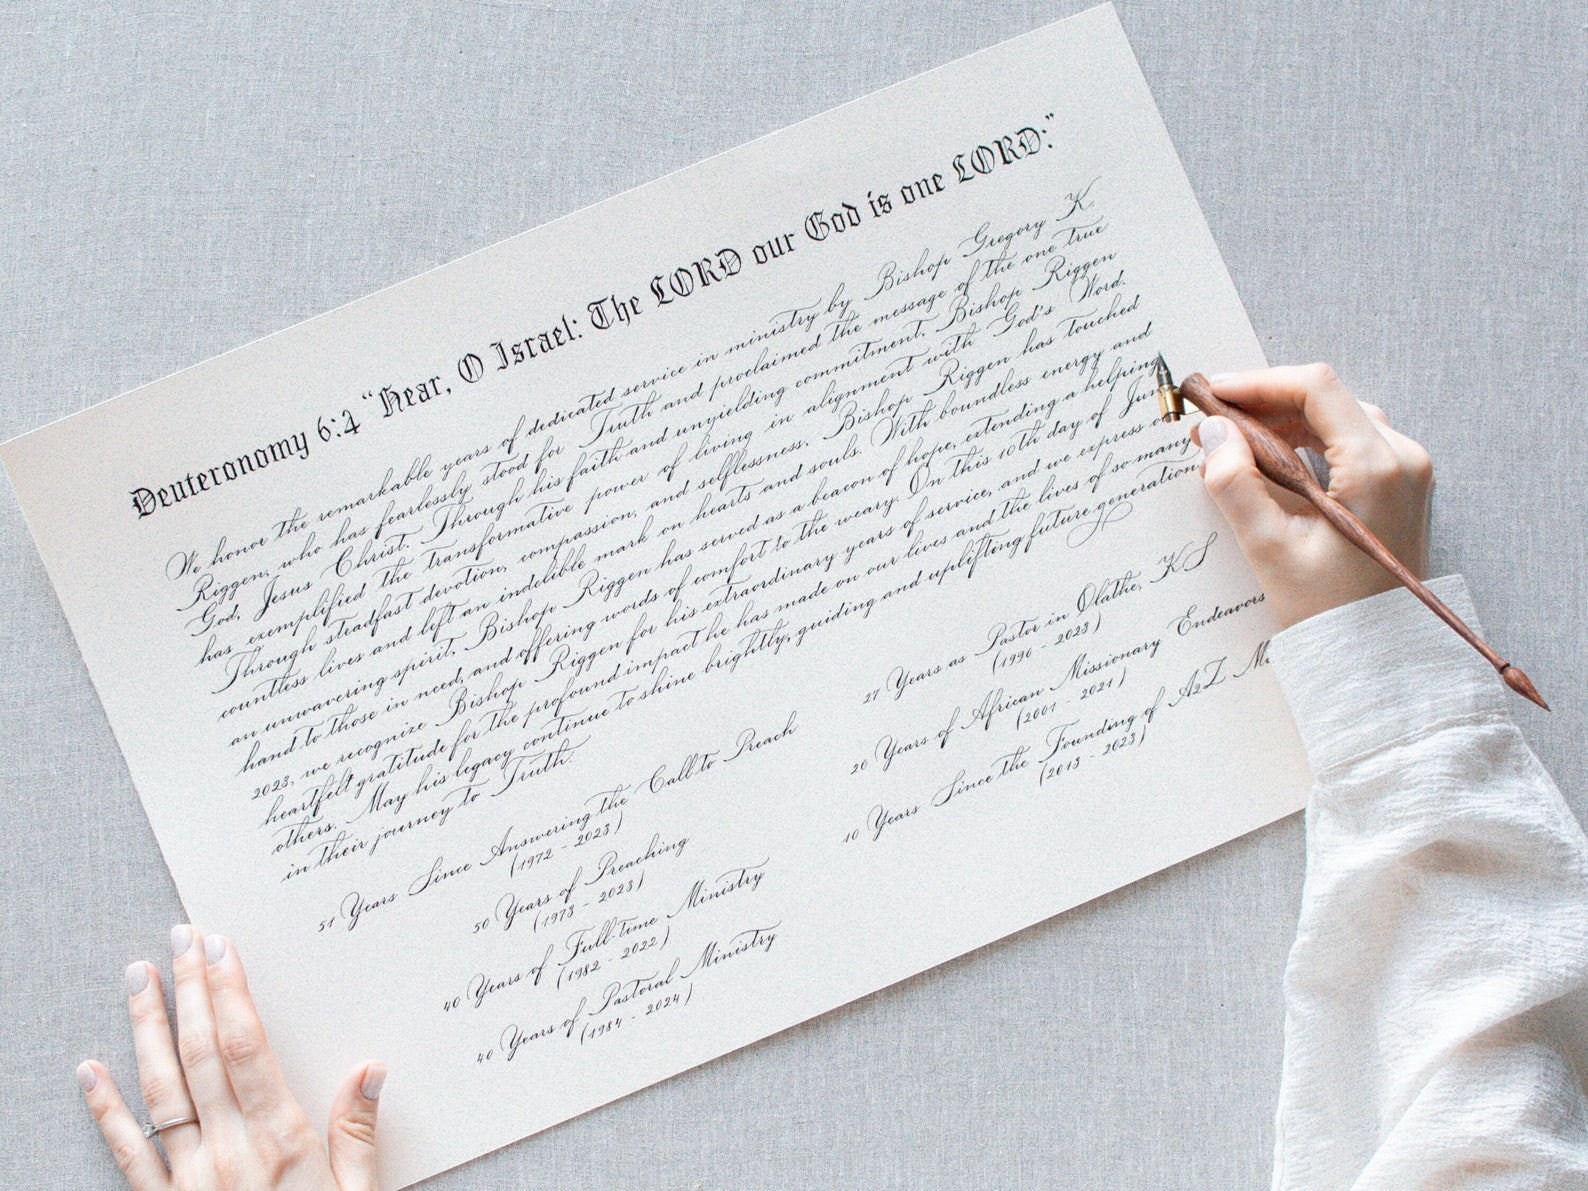 Deuteronomy 6:4 “Hear, O Israel: The LORD our God is one LORD:”
We honor the remarkable years of dedicated service in ministry by Bishop Gregory K.
Riggen, who has fearlessly stood for Truth and proclaimed the message of the one true
God, Jesus Christ. Through his faith and unyielding commitment, Bishop Riggen
has exemplified the transformative power of living in alignment with God's Word.
Through steadfast devotion, compassion, and selflessness, Bishop Riggen has touched
countless lives and left an indelible mark on hearts and souls. With boundless energy and
an unwavering spirit, Bishop Riggen has served as a beacon of hope, extending a helping
hand to those in need, and offering words of comfort to the weary. On this 10th day of
2023, we recognize Bishop Riggen for his extraordinary years of service, and we express
heartfelt gratitude for the profound impact he has made on our lives and the lives of so many
others. May his legacy continue to shine brightly, guiding and uplifting future generation
in their journey to Truth.
51 Years Since Answering the Call to Preach
(1972 - 2023)
50 Years of Preaching
(1973 - 2023)
40 Years of Full-time Ministry
(1982 - 2022)
40 Years of Pastoral Ministry
(1984 - 2024)
27 Years as Pastor in Olathe, KS
(1996 - 2023)
20 Years of African Missionary Endeavors
(2001 - 2021)
10 Years Since the Founding of A2Z
(2013 - 2023)